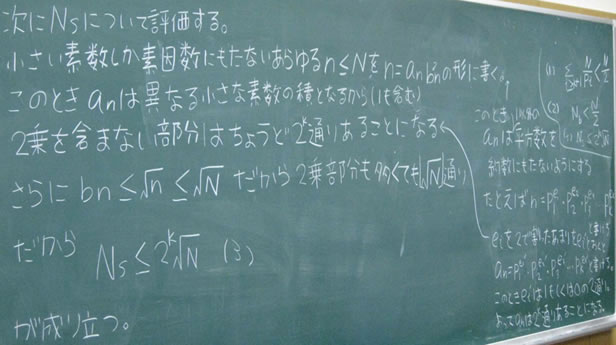 次にNsについて評価する。
小さい素数しか素因数にもたないあらゆるn≤Nをn=anbn²の形に書く。
このときanは異なる小さな素数の積となるから(1も含む)
2乗を含まない部分はちょうど2^k通りあることになる
さらにbn≤√n≤√Nだから2乗部分も多くても√N通り
だから
Ns≤2^k√N (3)
が成り立つ。
(1)
(2) Ns<N/2
このとき
anは平方数を
約数にもたないようにする
たとえばn=p₁^e₁・p₂^e₂・
eiを2で割ったあまりをei'と書けば
an=p₁^e₁'・p₂^e₂'
このときei'は1もしくは0の2通り。
よってanは2^k通りあることになる。